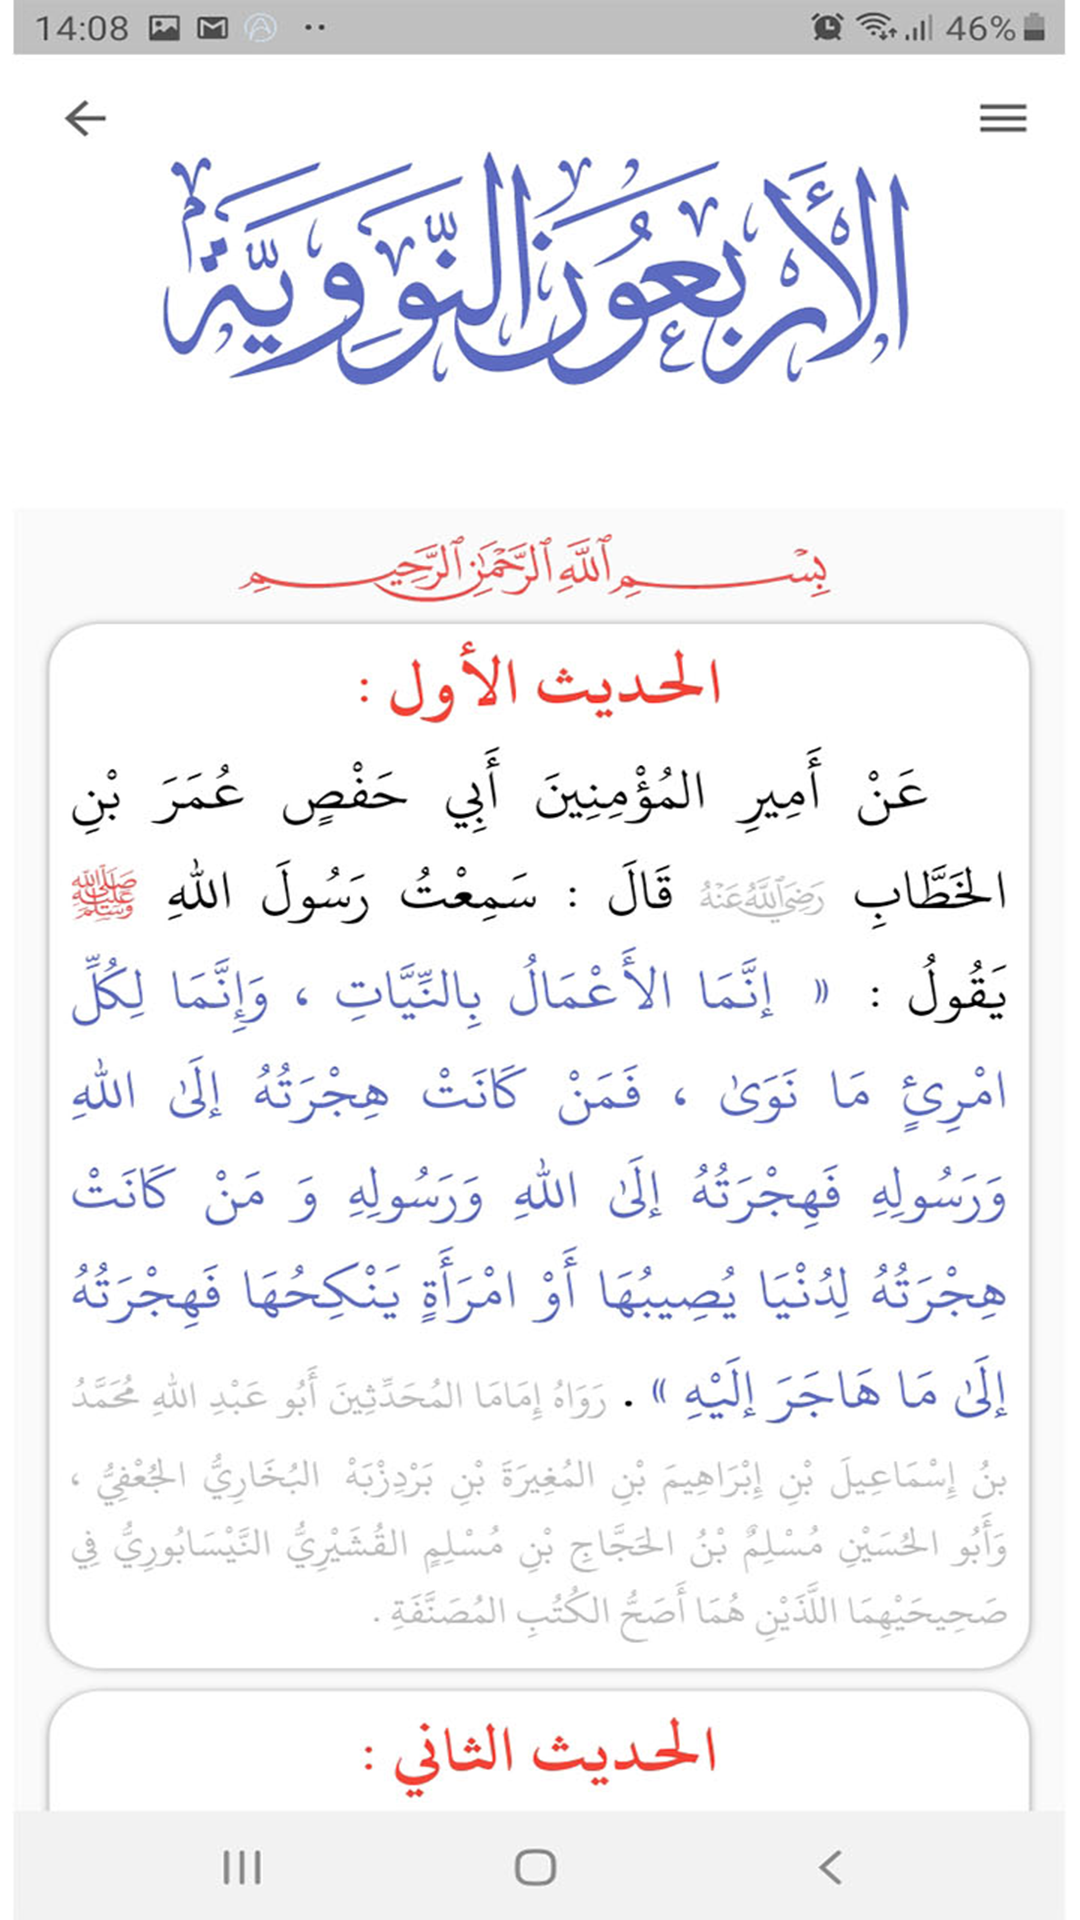 14:08
46%
الأربعون النووية
بِسْمِ ٱللَّهِ ٱلرَّحْمَٰنِ ٱلرَّحِيمِ
الحديث الأول :
عَنْ أَمِيرِ المُؤْمِنِينَ أَبِي حَفْصٍ عُمَرَ بْنِ
الخَطَّابِ رَضِيَ اللَّهُ عَنْهُ قَالَ : سَمِعْتُ رَسُولَ اللهِ ﷺ
يَقُولُ : « إِنَّمَا الأَعْمَالُ بِالنِّيَّاتِ ، وَإِنَّمَا لِكُلِّ
امْرِئٍ مَا نَوَىٰ ، فَمَنْ كَانَتْ هِجْرَتُهُ إِلَىٰ اللهِ
وَرَسُولِهِ فَهِجْرَتُهُ إِلَىٰ اللهِ وَرَسُولِهِ وَ مَنْ كَانَتْ
هِجْرَتُهُ لِدُنْيَا يُصِيبُهَا أَوْ امْرَأَةٍ يَنْكِحُهَا فَهِجْرَتُهُ
إِلَىٰ مَا هَاجَرَ إِلَيْهِ » . رَوَاهُ إِمَامَا المُحَدِّثِينَ أَبُو عَبْدِ اللهِ مُحَمَّدُ
بنُ إِسْمَاعِيلَ بْنِ إِبْرَاهِيمَ بْنِ المُغِيرَةَ بْنِ بَرْدِزْبَهْ البُخَارِيُّ الجُعْفِيُّ ،
وَأَبُو الحُسَيْنِ مُسْلِمُ بْنُ الحَجَّاجِ بْنِ مُسْلِمٍ القُشَيْرِيُّ النَّيْسَابُورِيُّ فِي
صَحِيحَيْهِمَا اللَّذَيْنِ هُمَا أَصَحُّ الكُتُبِ المُصَنَّفَةِ .
الحديث الثاني :